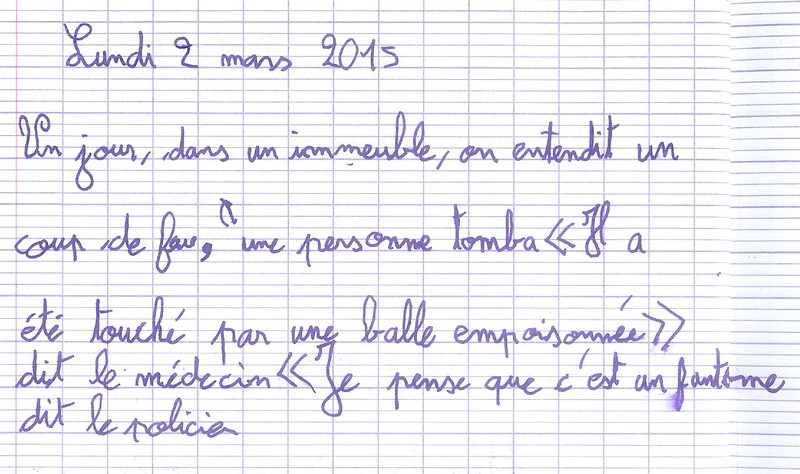 Lundi 2 mars 2015
Un jour, dans un immeuble, on entendit un
coup de feu, une personne tomba «Il a
été touché par une balle empoisonnée»
dit le médecin «Je pense que c'est un fantome
dit le policier